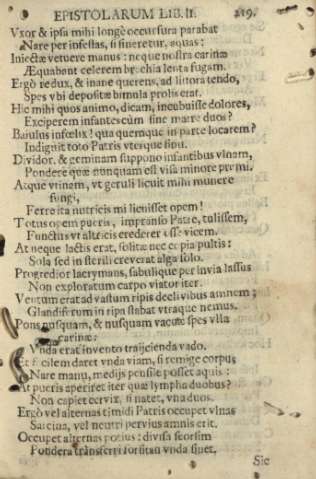 EPISTOLARUM LIB. II. 219.
Vxor & ipsa mihi longè occursura parabat
Nare per infestas, si sineretur, aquas:
Iniectæ vetuere manus: neque nostra carinæ
Æquabant celerem brachia lenta fugam.
Ergò redux, & inane querens, ad littora tendo,
Spes vbi depositæ bimula prolis erat.
Hic mihi quos animo, dicam, incubuisse dolores,
Exciperem infantes cùm sine matre duos?
Baiulus infœlix! qua quemque in parte locarem?
Indiguit toto Patris vterque sinu.
Dividor. & geminam suppono infantibus vlnam,
Pondere quæ nunquam est visa minore premi.
Atque vtinam, vt geruli licuit mihi munere
fungi,
Ferre ita nutricis mi licuisset opem!
Totus opem pueris, impranso Patre, tulissem,
Functus vt altricis crederer esse vicem.
At neque lactis erat, solitæ nec copia pultis:
Sola sed in sterili creverat alga solo.
Progredior lacrymans, sabulique per invia lassus
Non exploratum carpo viator iter.
Ventum erat ad vastum ripis declivibus amnem;
Glandiferum in ripa stabat vtraque nemus.
Pons nusquam, & nusquam vacuæ spes vlla
carinæ:
Vnda erat invento traijcienda vado.
Et facilem daret vnda viam, si remige corpus
Nare manu, medijs pensile posset aquis:
At pueris aperiret iter quæ lympha duobus?
Non capiet cervix, si natet, vna duos.
Ergò vel alternas timidi Patris occupet vlnas
Sarcina, vel neutri pervius amnis erit.
Occupet alternas potius: divisa seorsim
Pondera transferri forsitan vnda sinet.
Sic